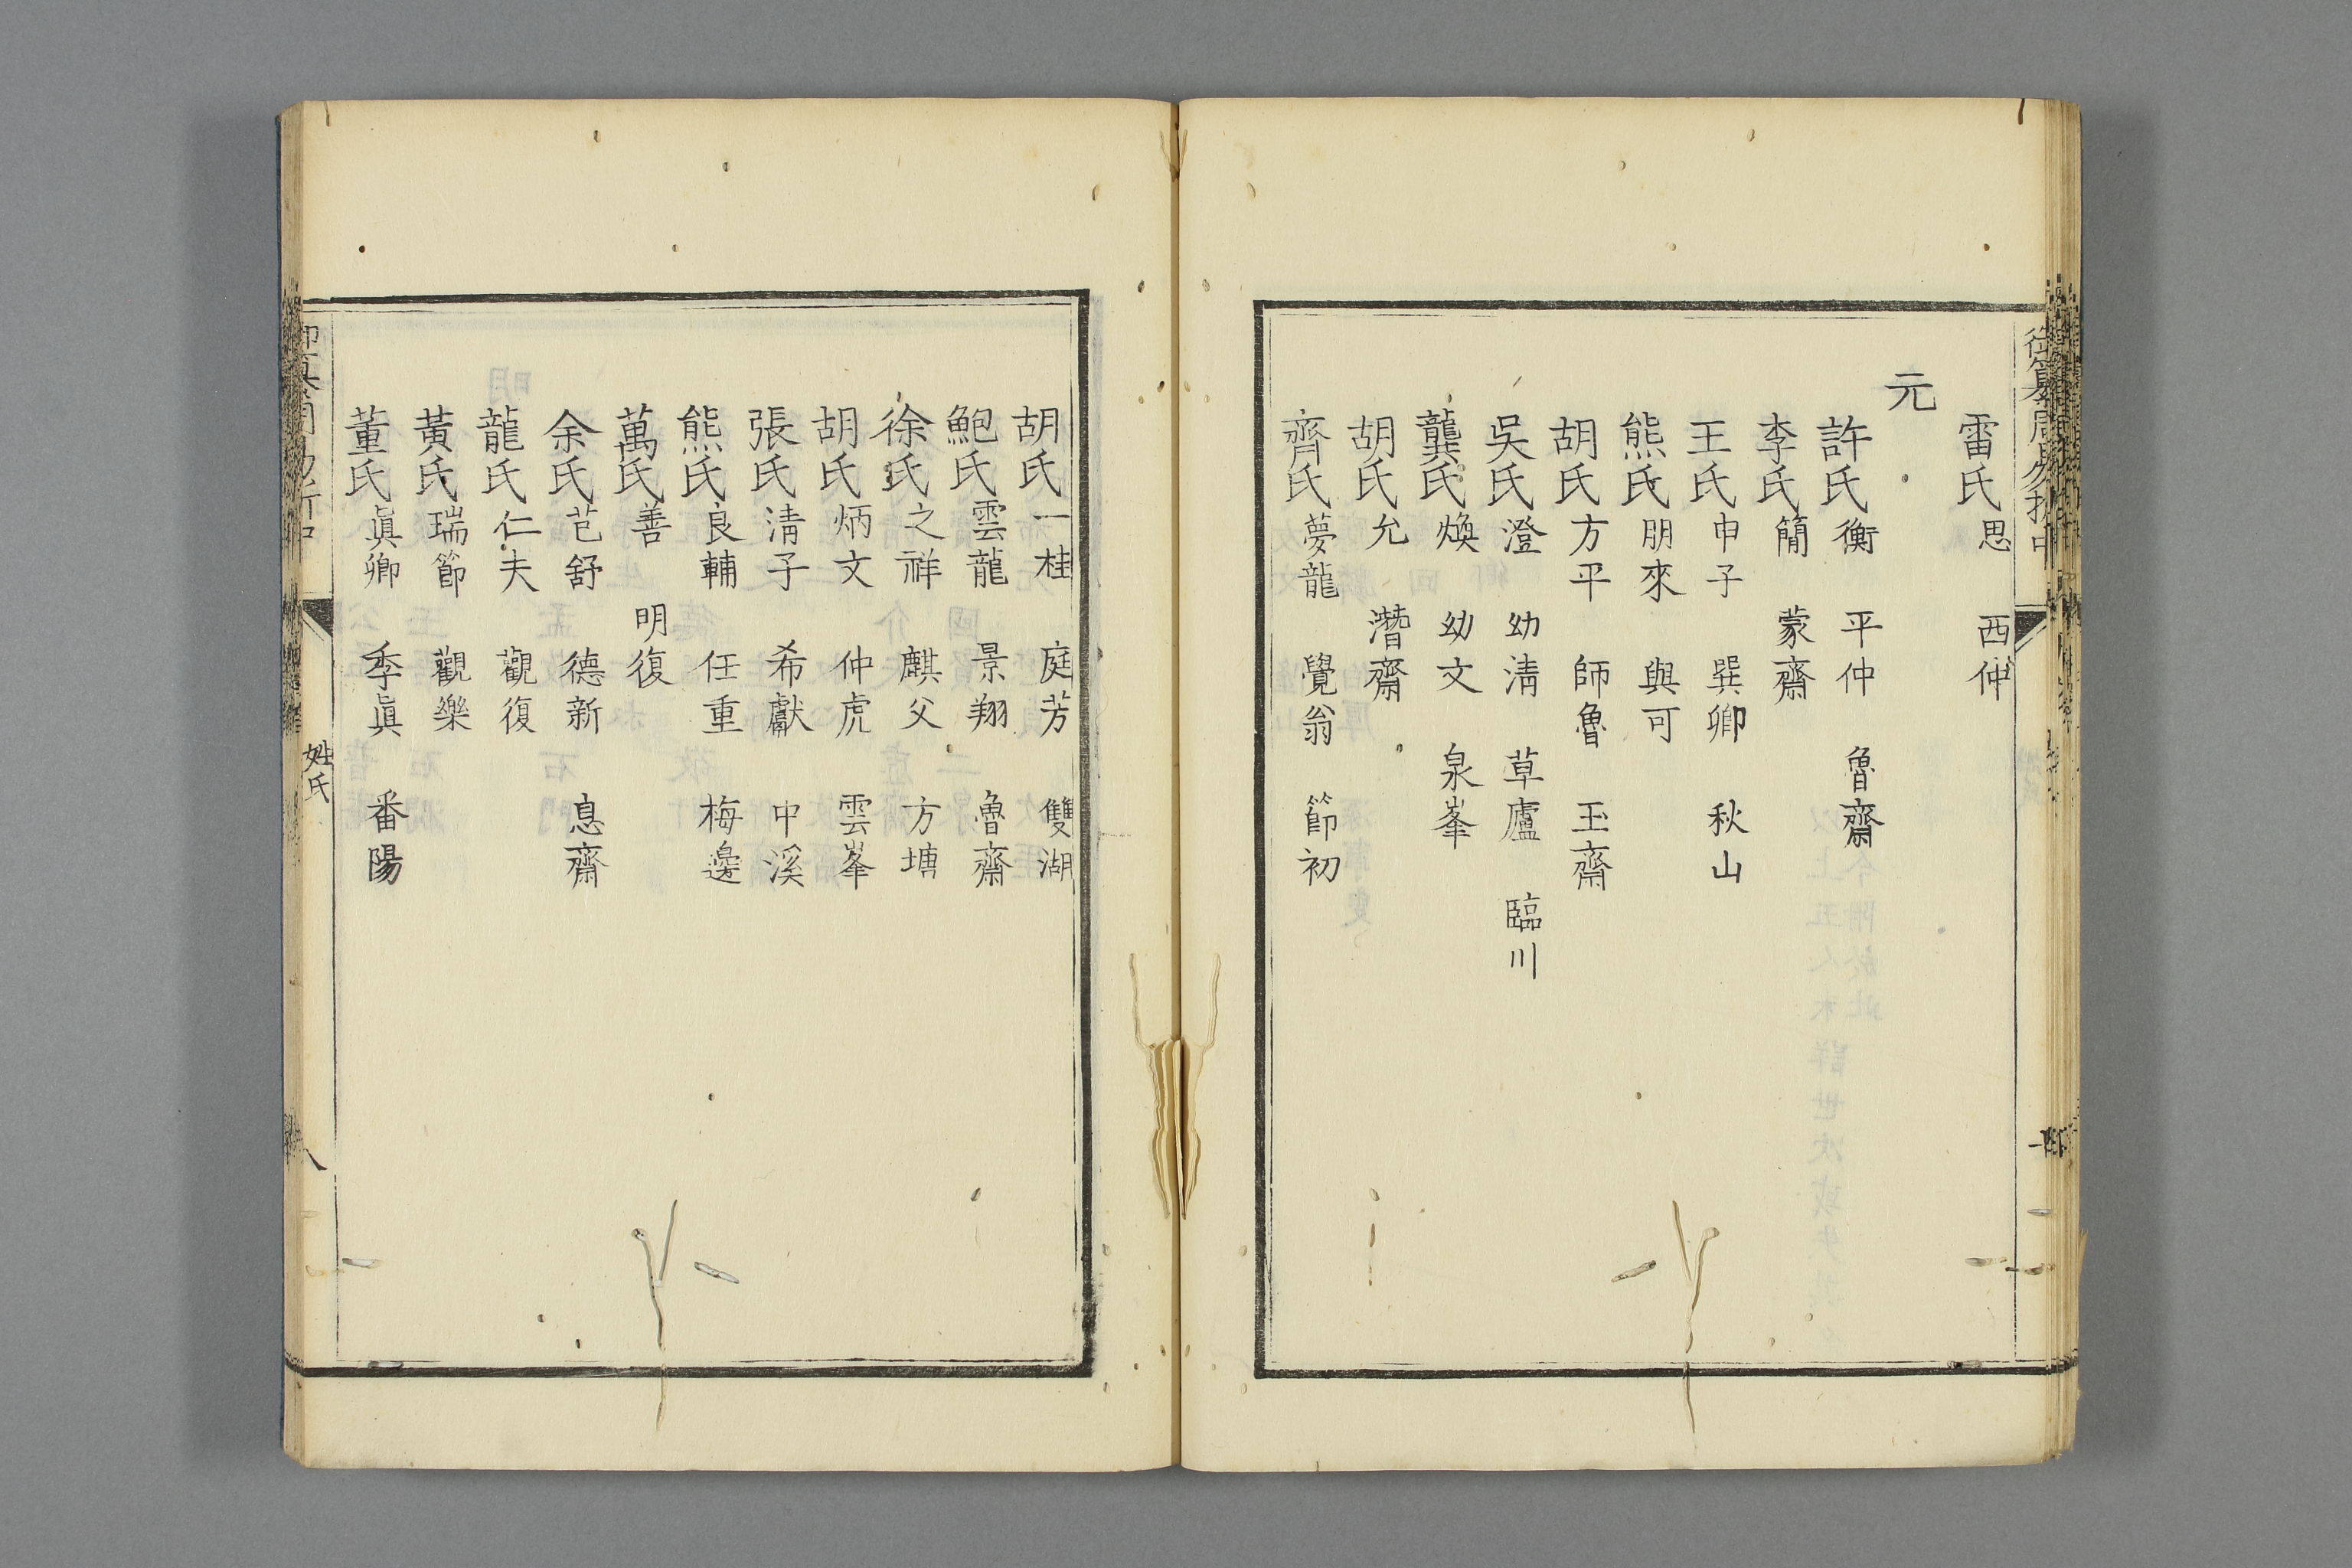 御纂周易折中
雷氏思 西仲
元
許氏衡 平仲 魯齋
李氏簡 蒙齋
王氏申子 巽卿 秋山
熊氏朋來 與可
胡氏方平 師魯 玉齋
吳氏澄 幼清 草廬 臨川
龔氏煥 幼文 泉峯
胡氏允 潛齋
齊氏夢龍 覺翁 節初
胡氏一桂 庭芳 雙湖
鮑氏雲龍 景翔 魯齋
徐氏之祥 麒父 方塘
胡氏炳文 仲虎 雲峯
張氏清子 希獻 中溪
熊氏良輔 任重 梅邊
萬氏善 明復
余氏芑舒 德新 息齋
龍氏仁夫 觀復
黃氏瑞節 觀樂
董氏眞卿 季眞 番陽
御纂周易折中 姓氏 八